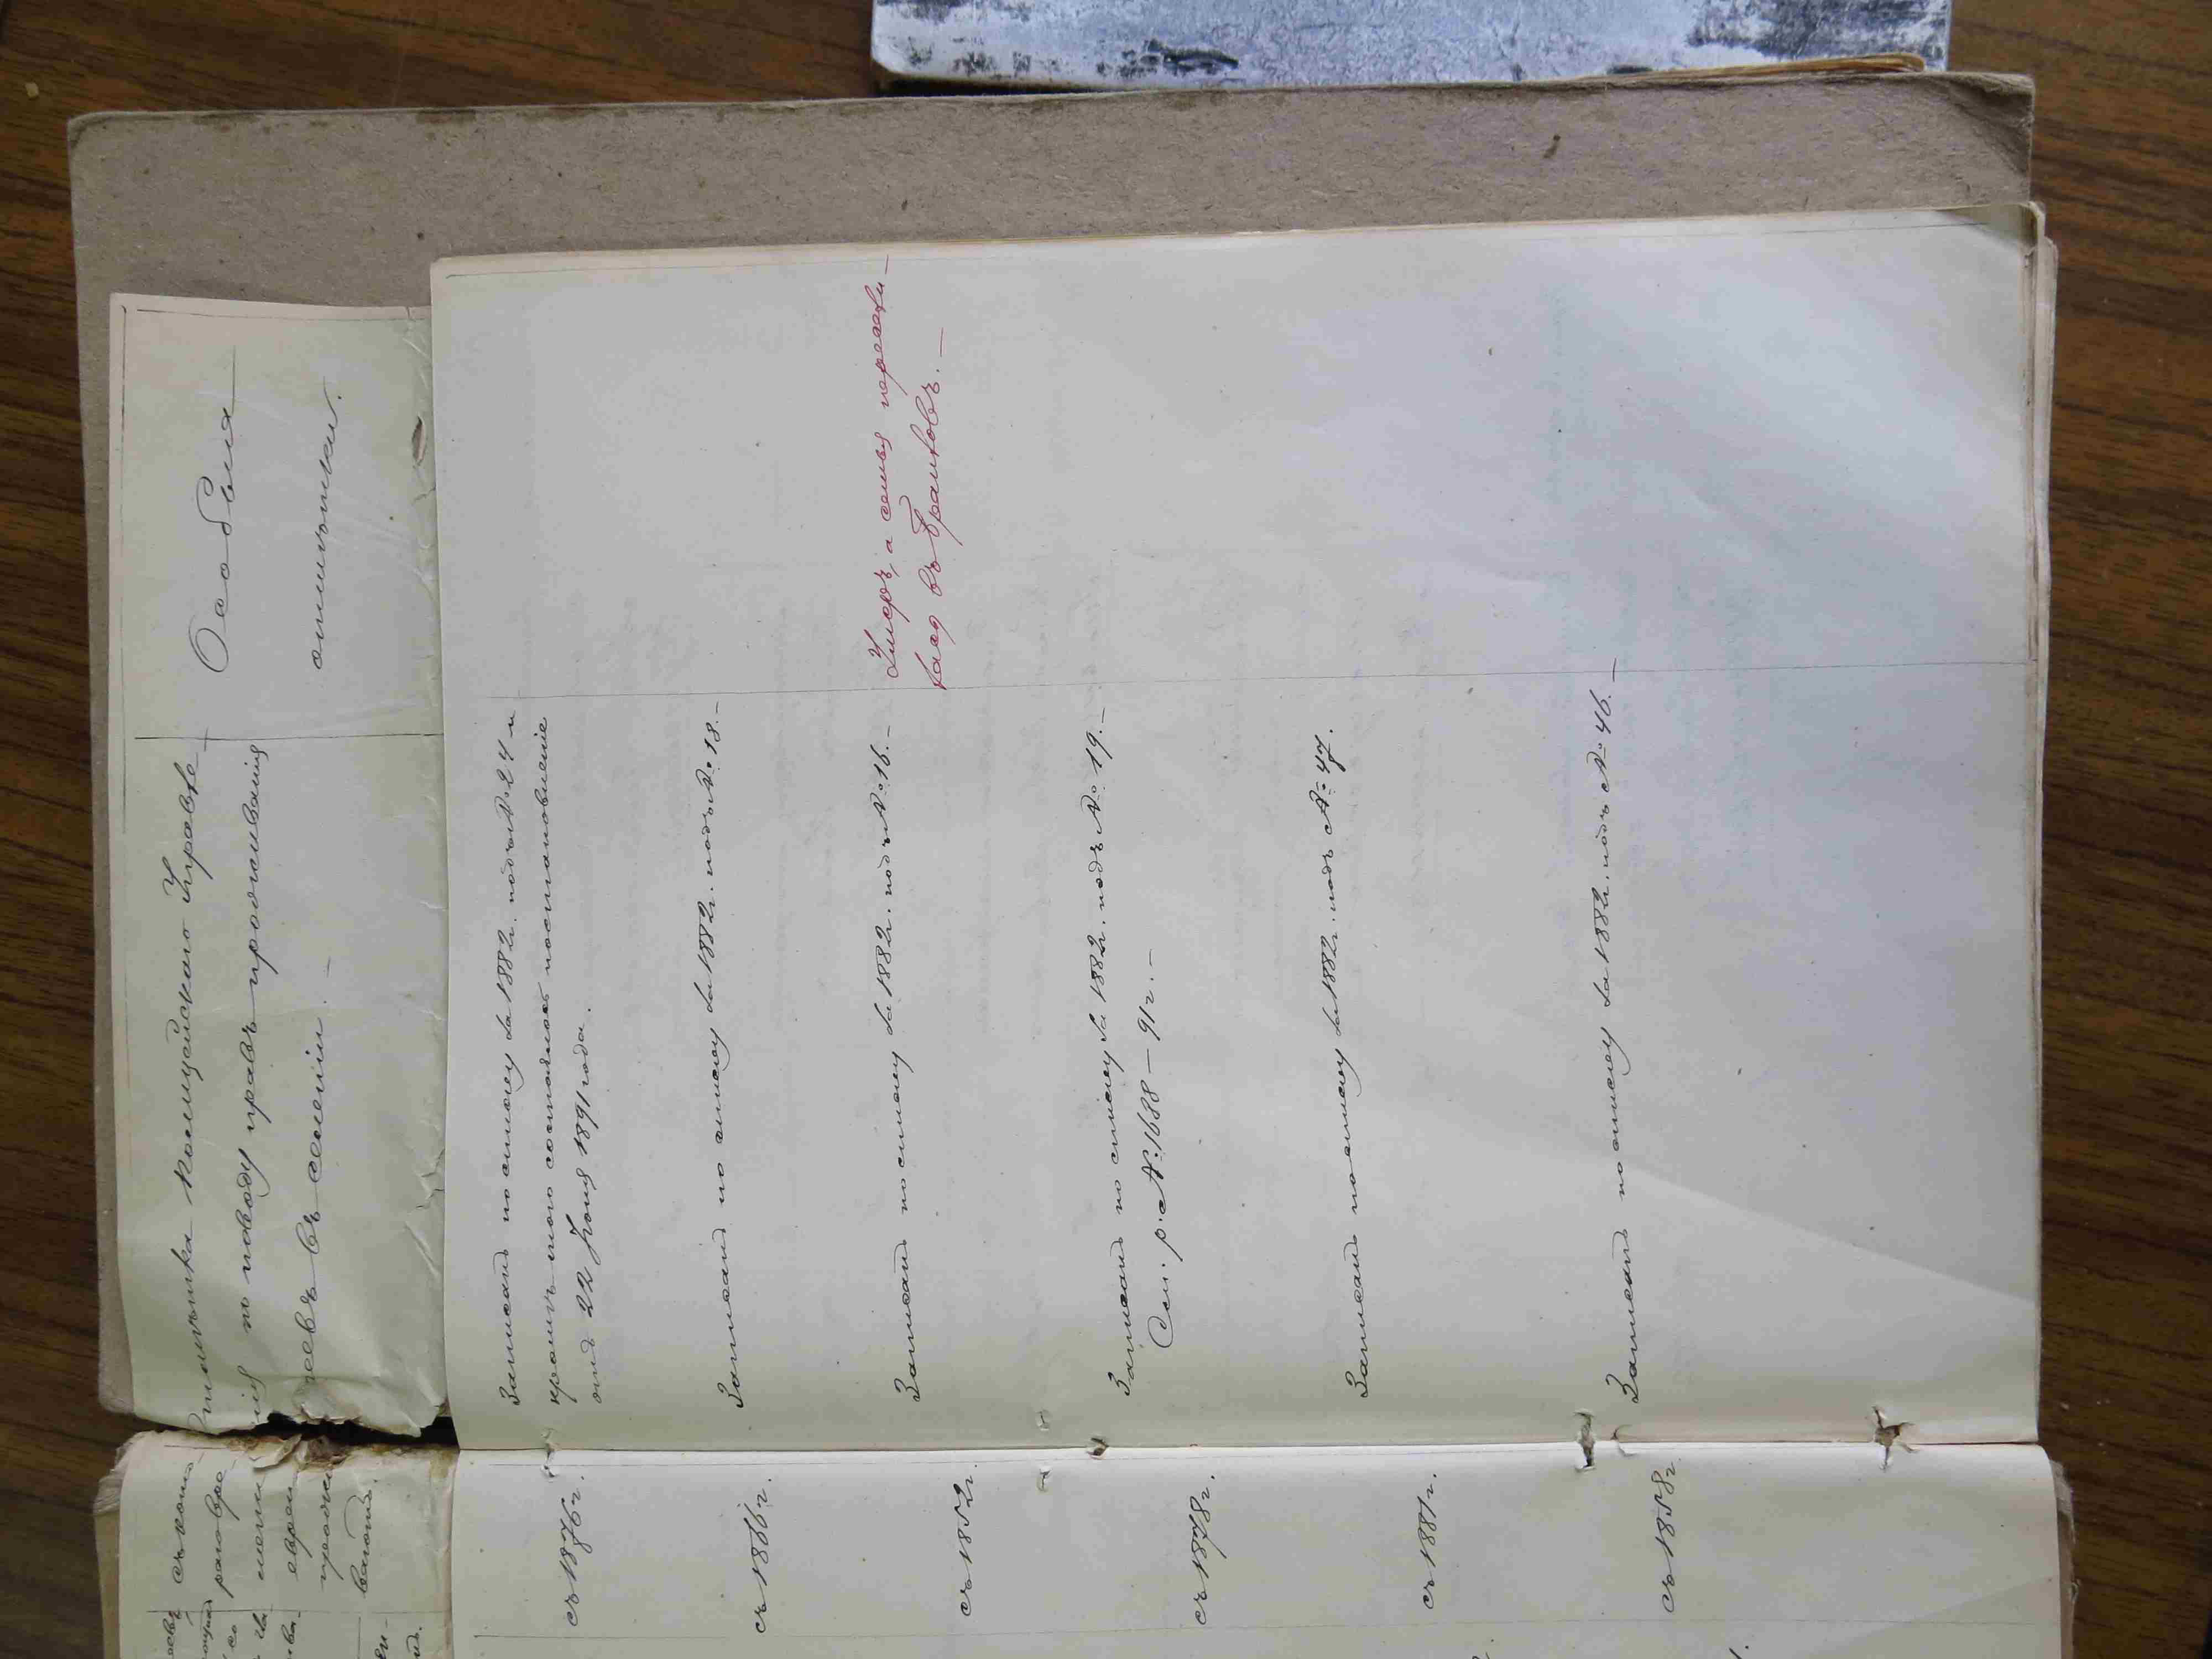 съ кото-
раго вре-
мени
евреи
прожи
ваютъ.
Отмѣтка Полицейскаго Управле-
нія по поводу правъ проживанія
евреевъ въ селеніи. —
Особыя
отмѣтки.
съ 1876 г.
Записанъ по списку за 1882 г. подъ № 24 и
кромѣ того состоялось постановленіе
отъ 22 Іюня 1891 года.
съ 1866 г.
Записанъ по списку за 1882 г. подъ № 18. —
съ 1852 г.
Записанъ по списку за 1882 г. подъ № 16. —
Умеръ, а семья переѣха-
въ Браиловъ. —
съ 1878 г.
Записанъ по списку за 1882 г. подъ № 19. —
См. р. № 1688 — 91 г. —
съ 1881 г.
Записанъ по списку за 1882 г. подъ № 47.
съ 1858 г.
Записанъ по списку за 1882 г. подъ № 46. —